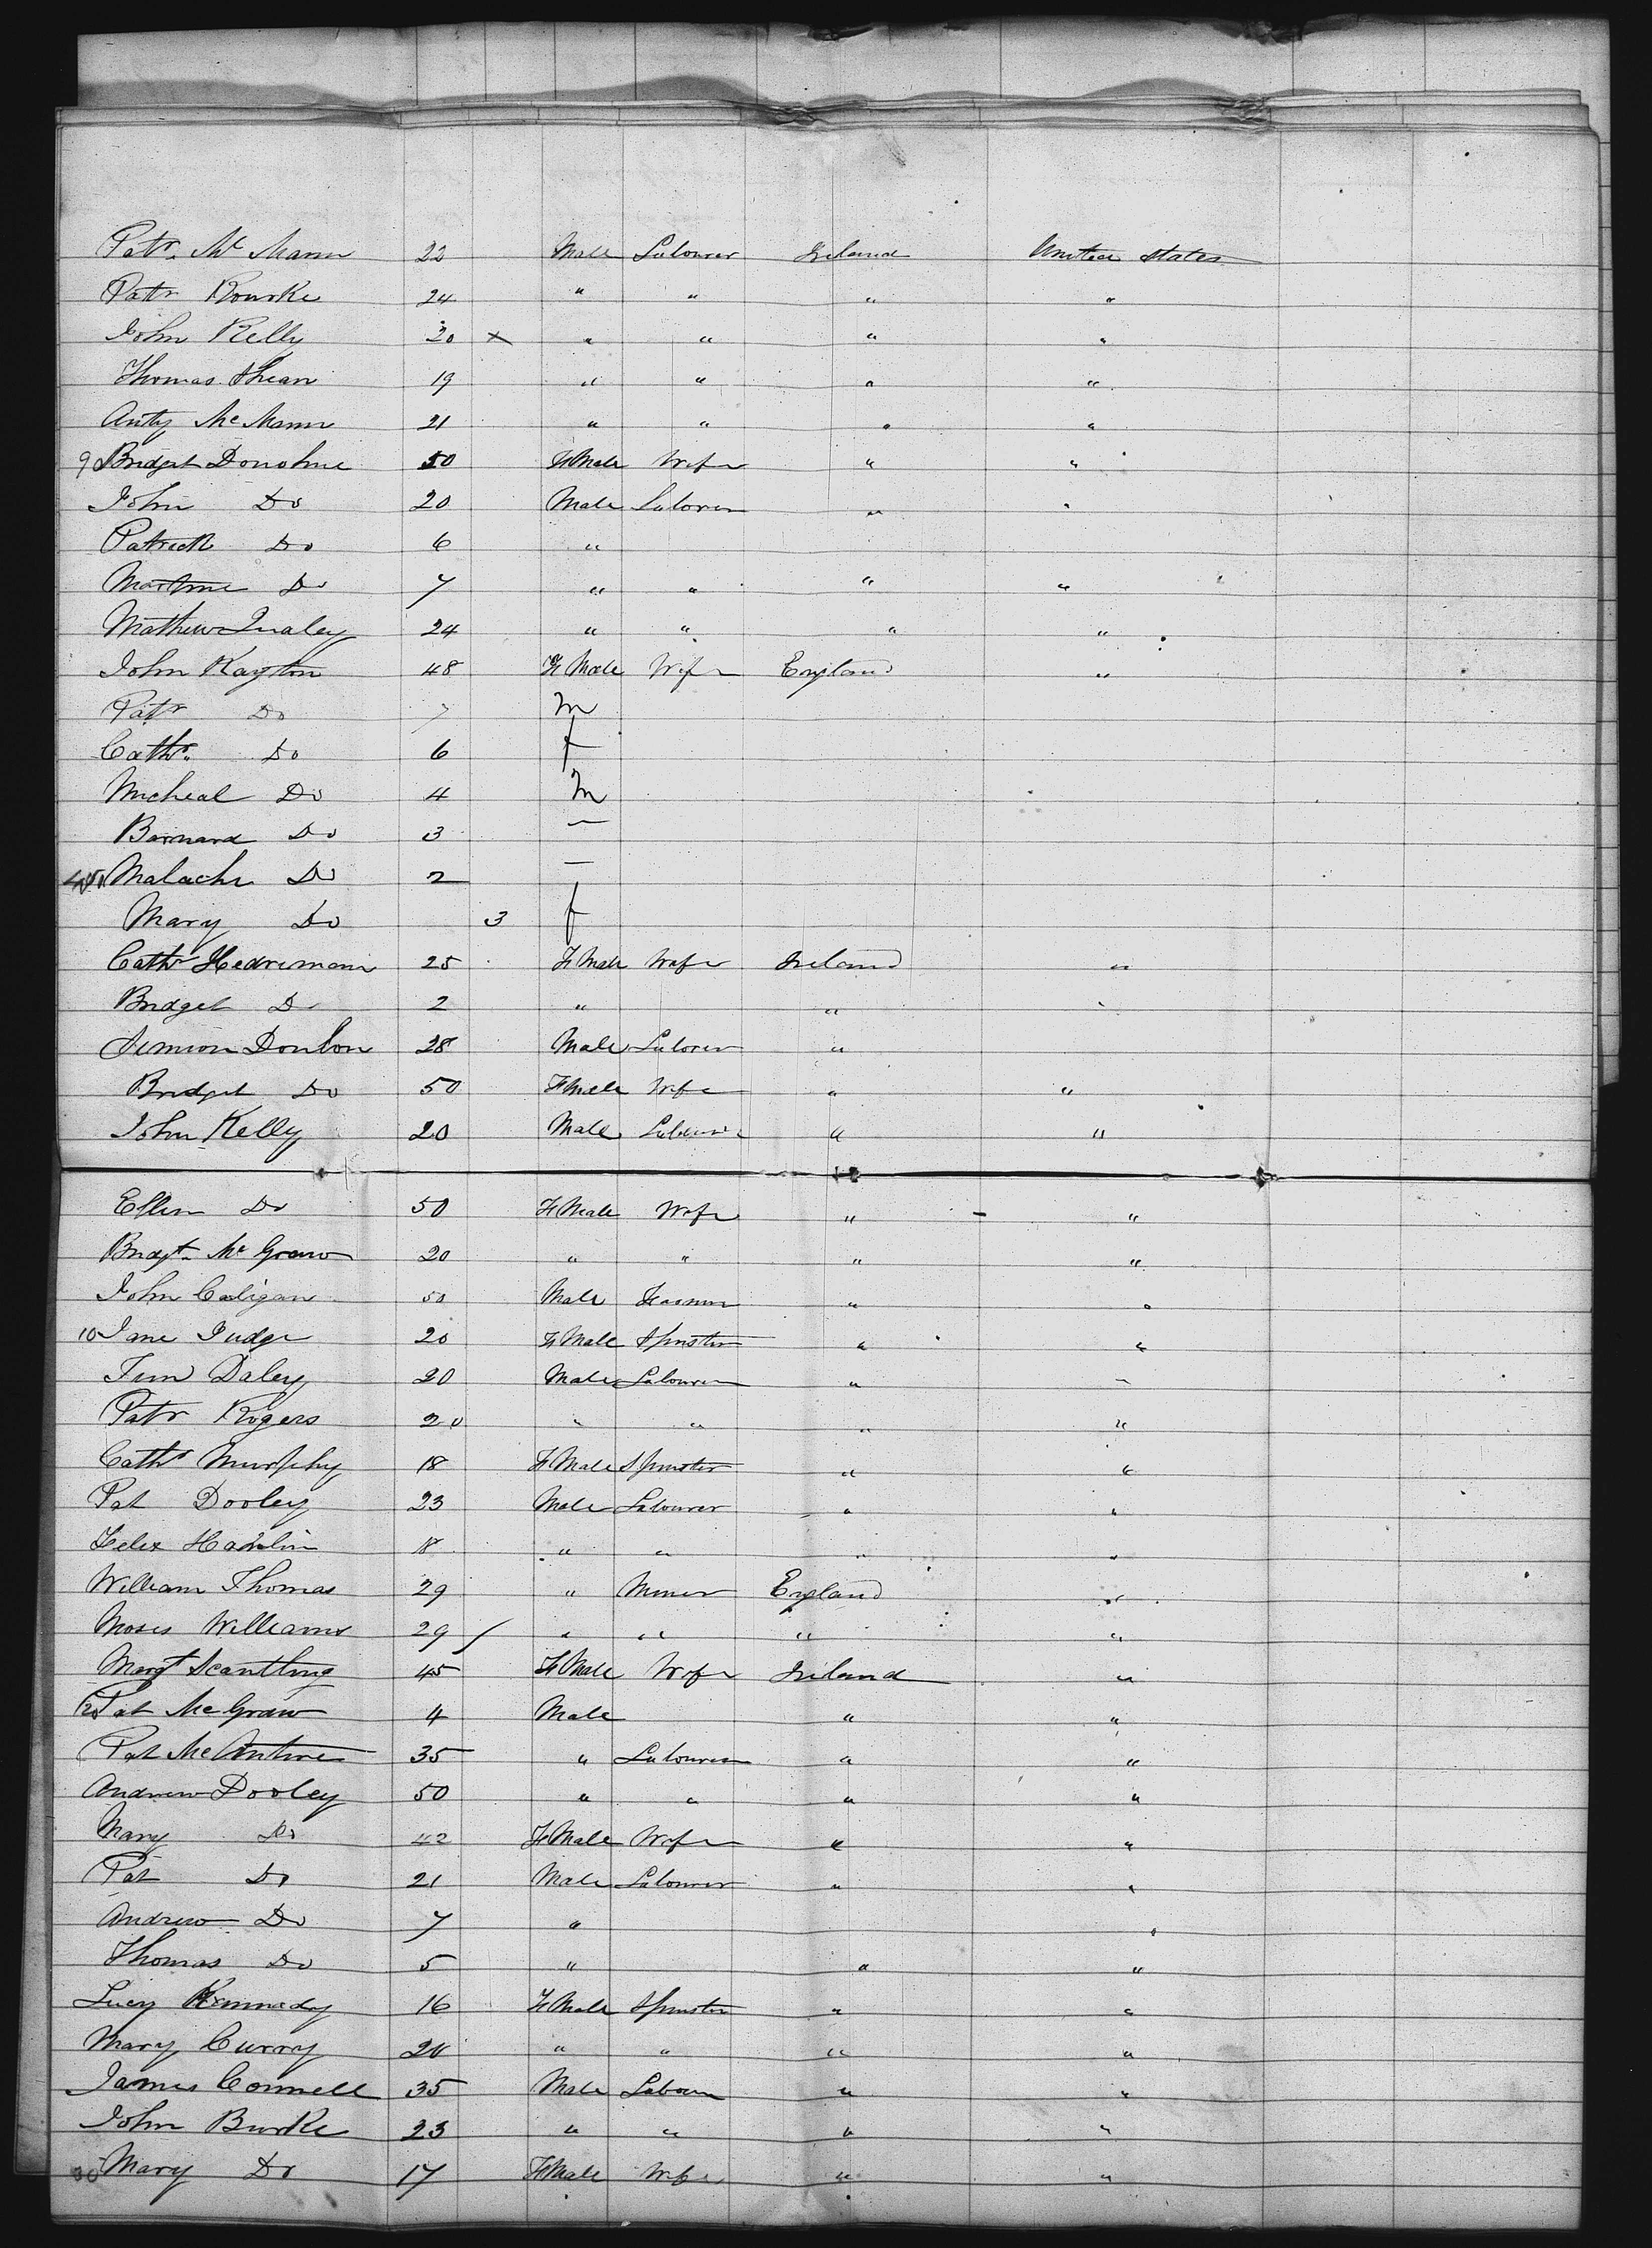 Patr. Mc Mann 22 Male Labourer Ireland United States
Patr Rourke 24 " " " "
John Kelly 20 x " " " "
Thomas Shean 19 " " " "
Anty Mc Mann 21 " " " "
9 Bridget Donohue 50 FMale Wife " "
John Do 20 Male Laborer " "
Patrick Do 6 "
Do 7 " " " "
Mathew 24 " " " "
John Kayton 48 FMale Wife England "
Patr Do 7 m
Cathr. Do 6 f
Micheal Do 4 m
Barnard Do 3 —
Malachi Do 2 —
Mary Do 3 f
Cathr Hedremann 25 FMale Wife Ireland "
Bridget Do 2 " " "
Simion Donlon 28 Male Laborer "
Bridget Do 50 FMale Wife " "
John Kelly 20 Male Labourer " "
Ellen Do 50 FMale Wife " "
Bridgt. Mc Graw 20 " " " "
John Caligan 50 Male Farmer " "
10 Jane Judge 20 FMale Spinster " "
Daley 20 Male Labourer " "
Patr Rogers 20 " " " "
Cathr Murphy 18 FMale Spinster " "
Pat Dooley 23 Male Labourer " "
Felix Hanlin 18 " " " "
William Thomas 29 " Miner England "
Moses Williams 29 / " " " "
Margt Scantling 45 FMale Wife Ireland "
20 Pat McGraw 4 Male " "
Pat McAntire 35 " Labourer " "
Andrew Dooley 50 " " " "
Mary Do 42 FMale Wife " "
Pat Do 21 Male Labourer " "
Andrew Do 7 " "
Thomas Do 5 " " "
Lucy Kennady 16 FMale Spinster " "
Mary Curry 20 " " " "
James Connell 35 Male Labour " "
John Burke 23 " " " "
30 Mary Do 17 FMale Wife " "